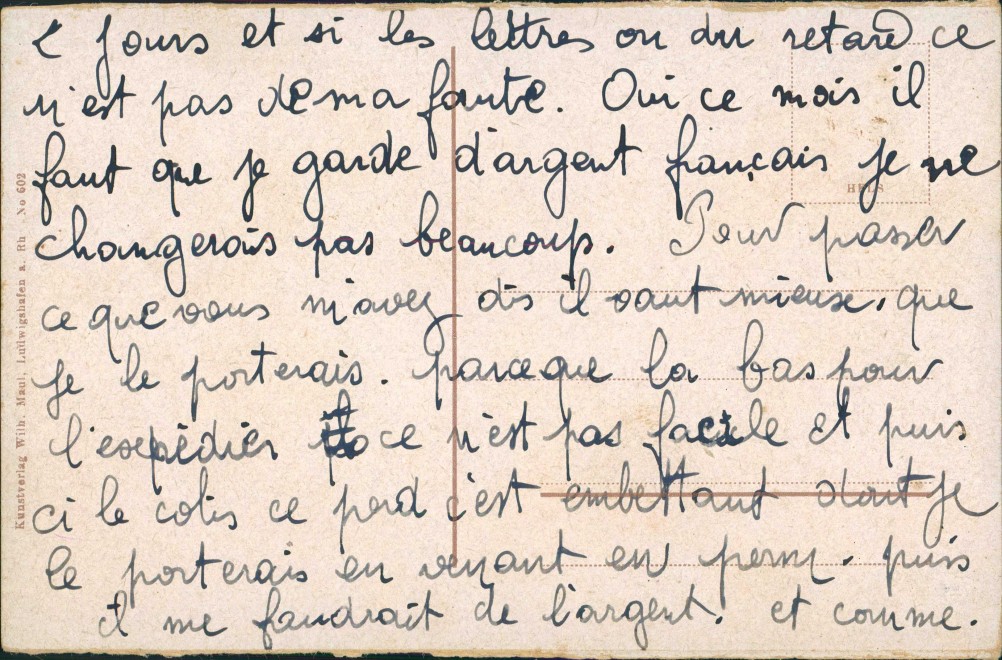 2 jours et si les lettres on du retard ce
n'est pas de ma faute. Oui ce mois il
faut que je garde d'argent français je ne
changerais pas beaucoup. Pour passer
ce que vous m'avez dis il vaut mieux, que
je le porterais. parceque la bas pour
l'expédier ce n'est pas facile et puis
ci le colis ce perd c'est embettant dont je
le porterais en venant en perm. puis
il me faudrait de l'argent. et comme.
Kunstverlag Wilh. Maul, Ludwigshafen a. Rh No 602